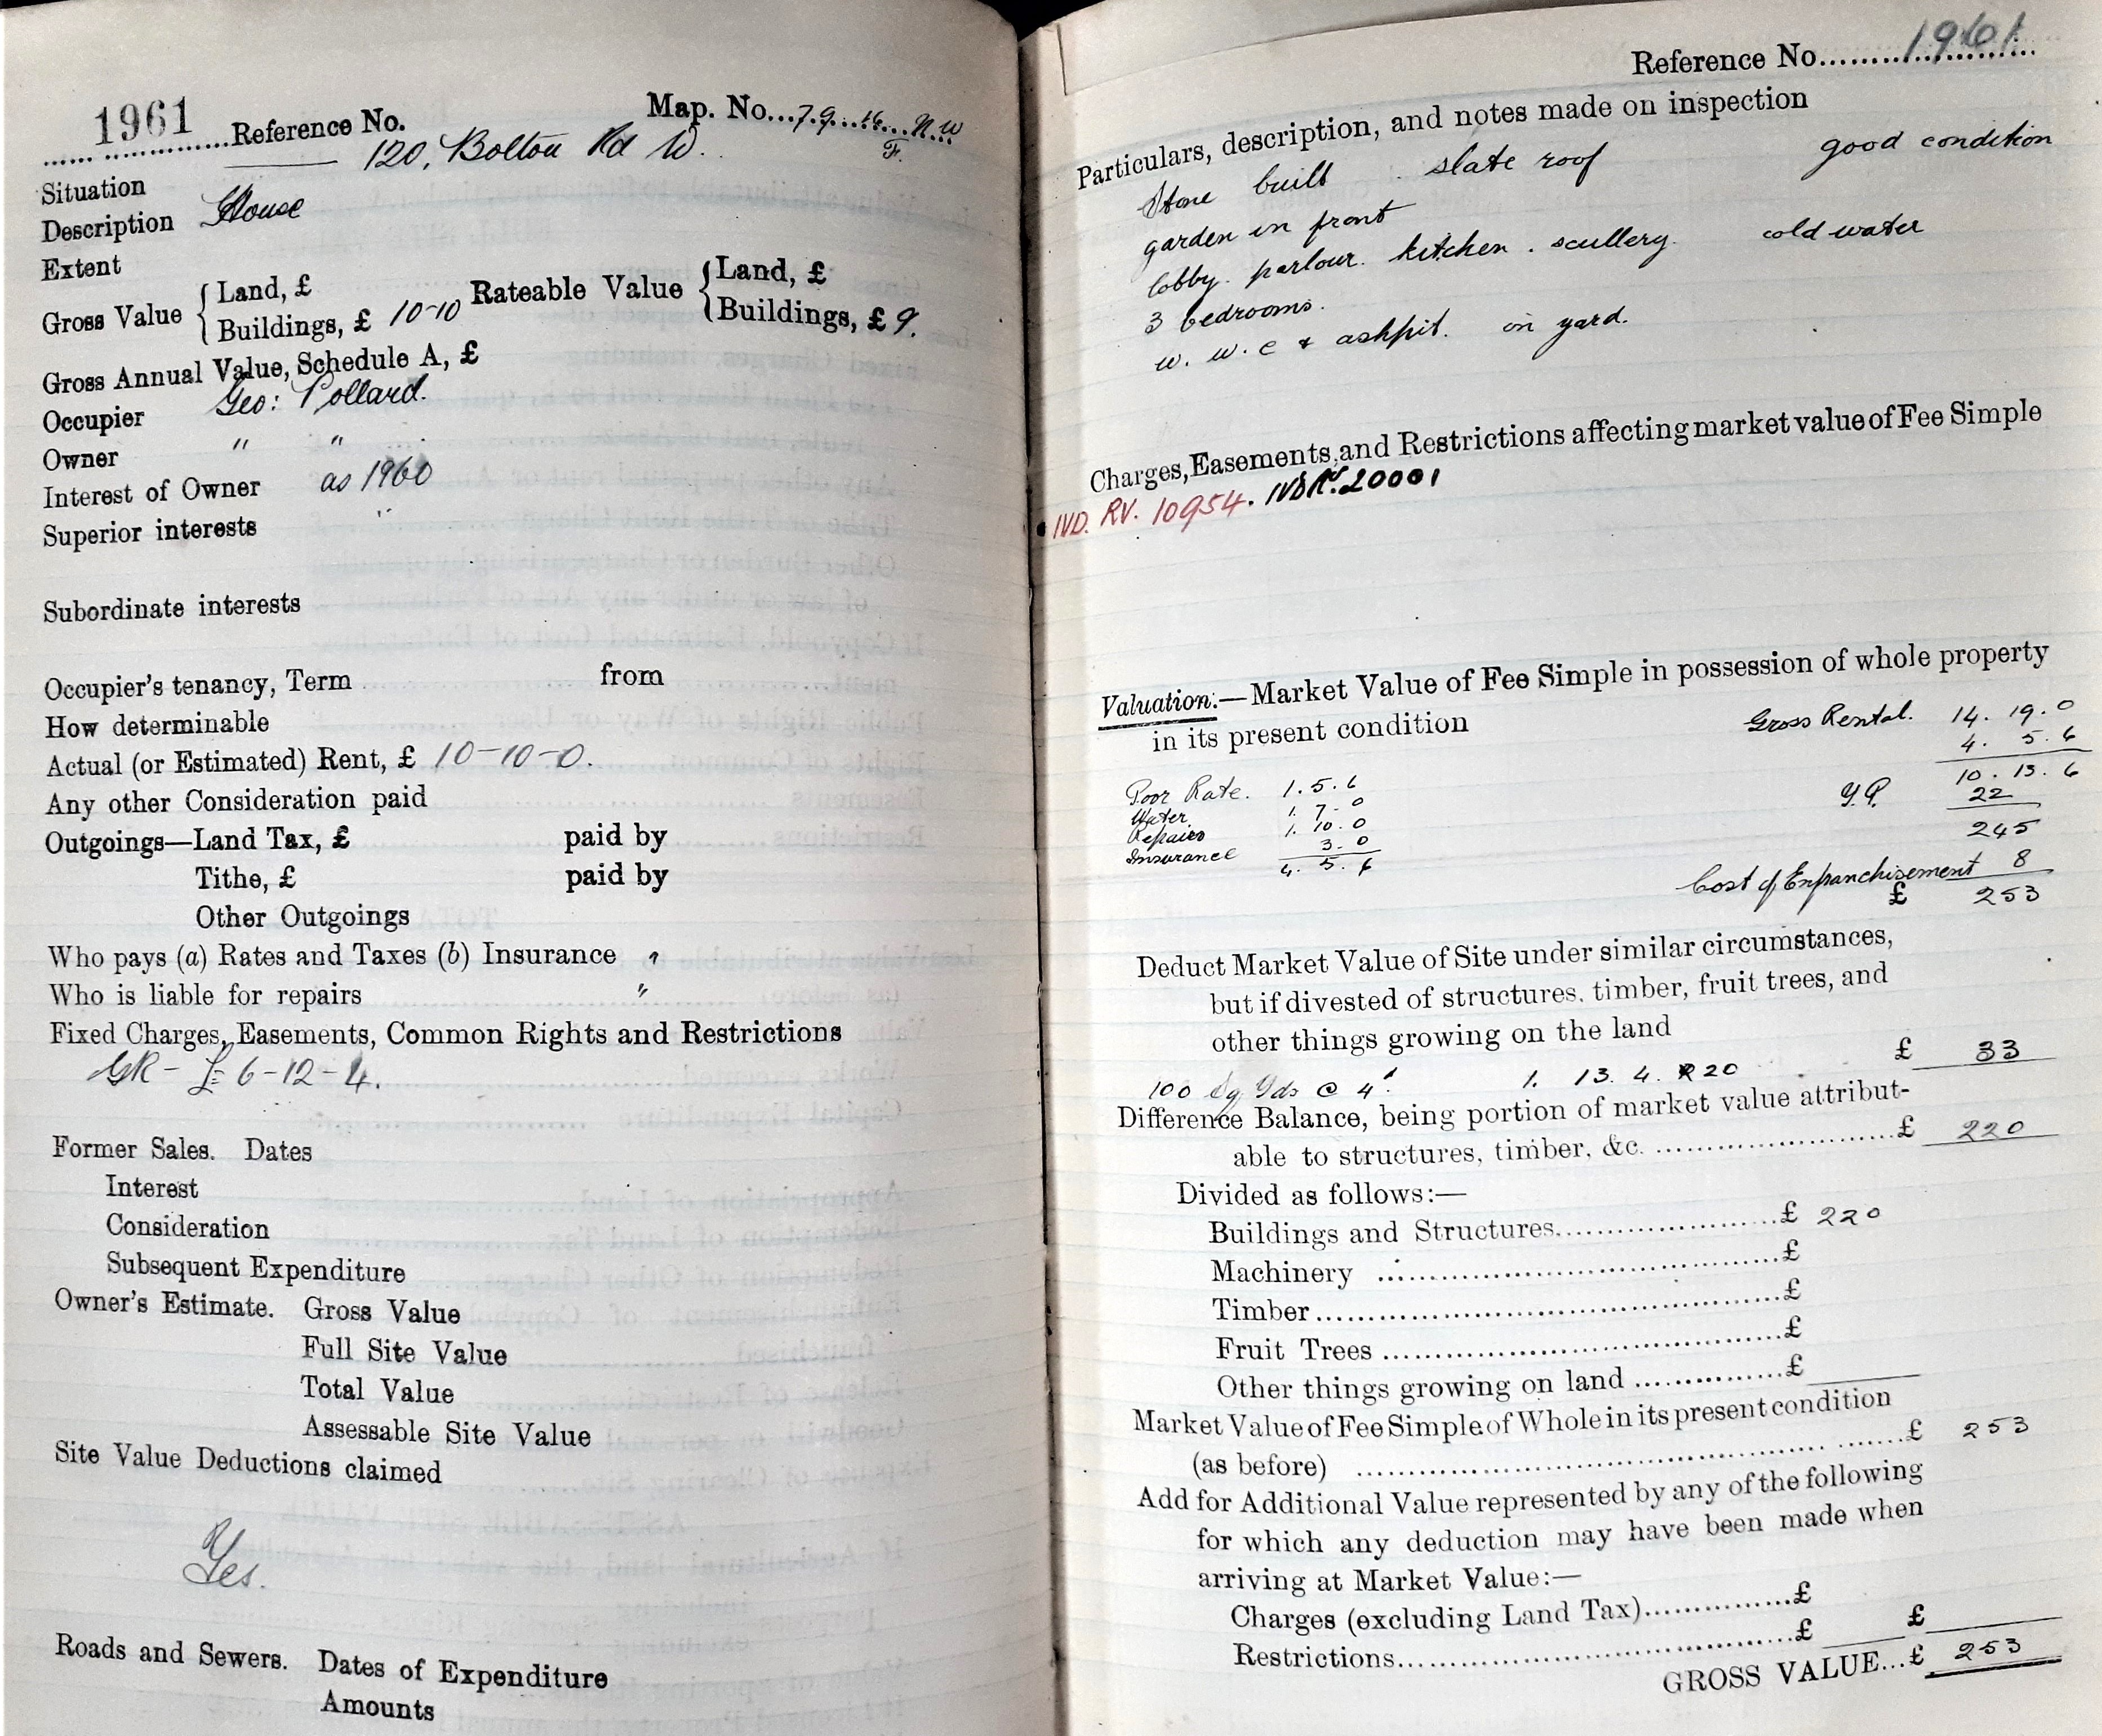 1961 Reference No. Map. No. 79. 16. N.W
F.
Situation 120, Bolton Rd W.
Description House
Extent
Gross Value { Land, £ Rateable Value { Land, £
Buildings, £ 10-10 Buildings, £ 9.
Gross Annual Value, Schedule A, £
Occupier Geo: Pollard.
Owner " "
Interest of Owner as 1960
Superior interests "
Subordinate interests
Occupier's tenancy, Term from
How determinable
Actual (or Estimated) Rent, £ 10-10-0.
Any other Consideration paid
Outgoings—Land Tax, £ paid by
Tithe, £ paid by
Other Outgoings
Who pays (a) Rates and Taxes (b) Insurance "
Who is liable for repairs "
Fixed Charges, Easements, Common Rights and Restrictions
GR - £6-12-4.
Former Sales. Dates
Interest
Consideration
Subsequent Expenditure
Owner's Estimate. Gross Value
Full Site Value
Total Value
Assessable Site Value
Site Value Deductions claimed
Yes.
Roads and Sewers. Dates of Expenditure
Amounts
Reference No. 1961
Particulars, description, and notes made on inspection
Stone built . slate roof good condition
garden in front
lobby. parlour. kitchen. scullery. cold water
3 bedrooms.
w. w.c & ashpit. in yard.
Charges, Easements, and Restrictions affecting market value of Fee Simple
IVD. RV. 10954. IVD RV. 20001
Valuation:—Market Value of Fee Simple in possession of whole property
in its present condition Gross Rental. 14. 19. 0
4. 5. 6
Poor Rate. 1. 5. 6 10. 13. 6
Water 1. 7. 0 Y.P. 22
Repairs 1. 10. 0 245
Insurance 3. 0 Cost of Enfranchisement 8
4. 5. 6 £ 253
Deduct Market Value of Site under similar circumstances,
but if divested of structures, timber, fruit trees, and
other things growing on the land £ 33
100 Sq Yds @ 4d 1. 13. 4. 20
Difference Balance, being portion of market value attribut-
able to structures, timber, &c. £ 220
Divided as follows:—
Buildings and Structures £ 220
Machinery £
Timber £
Fruit Trees £
Other things growing on land £
Market Value of Fee Simple of Whole in its present condition
(as before) £ 253
Add for Additional Value represented by any of the following
for which any deduction may have been made when
arriving at Market Value:—
Charges (excluding Land Tax) £
Restrictions £ £
GROSS VALUE... £ 253